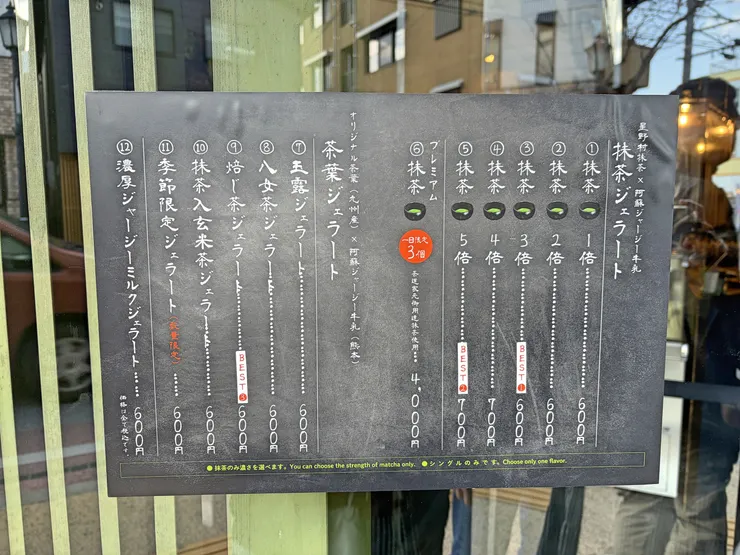 星野村抹茶×阿蘇ジャージー牛乳
抹茶ジェラート
①抹茶 1倍……600円
②抹茶 2倍……600円
③抹茶 3倍……BEST① 600円
④抹茶 4倍……700円
⑤抹茶 5倍……BEST② 700円
プレミアム
⑥抹茶 一日限定3個 茶道家元御用達抹茶使用… 4,000円
オリジナル茶葉(九州産)×阿蘇ジャージー牛乳(熊本)
茶葉ジェラート
⑦玉露ジェラート……600円
⑧八女茶ジェラート……600円
⑨焙じ茶ジェラート……BEST③ 600円
⑩抹茶入玄米茶ジェラート……600円
⑪季節限定ジェラート(数量限定)……600円
⑫濃厚ジャージーミルクジェラート……600円
価格は全て税込です。
●抹茶のみ濃さを選べます。You can choose the strength of matcha only. ●シングルのみです。Choose only one flavor.